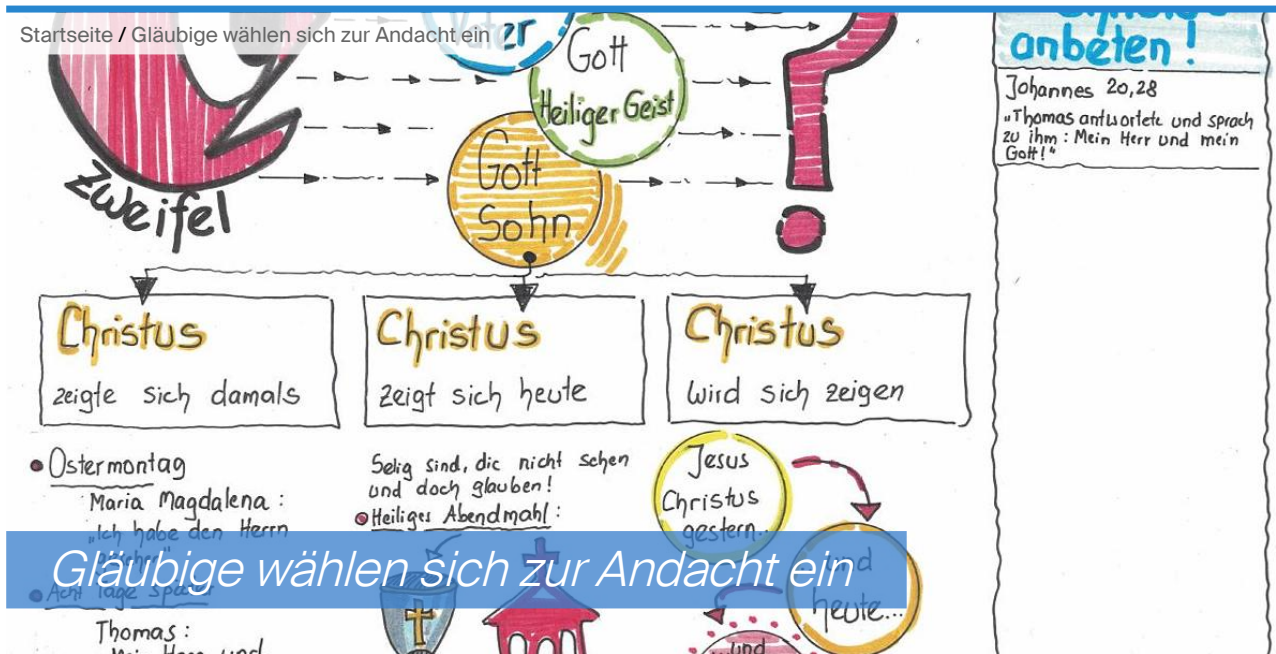 Startseite / Gläubige wählen sich zur Andacht ein
Gott
Heiliger Geist
Gott
Sohn
Zweifel
anbeten!
Johannes 20,28
„Thomas antwortete und sprach
zu ihm: Mein Herr und mein
Gott!“
Christus
zeigte sich damals
Christus
zeigt sich heute
Christus
wird sich zeigen
Ostermontag
Maria Magdalena:
„Ich habe den Herrn
Thomas:
Selig sind, die nicht sehen
und doch glauben!
Heiliges Abendmahl:
Jesus
Christus
gestern...
und
heute...
und
Gläubige wählen sich zur Andacht ein